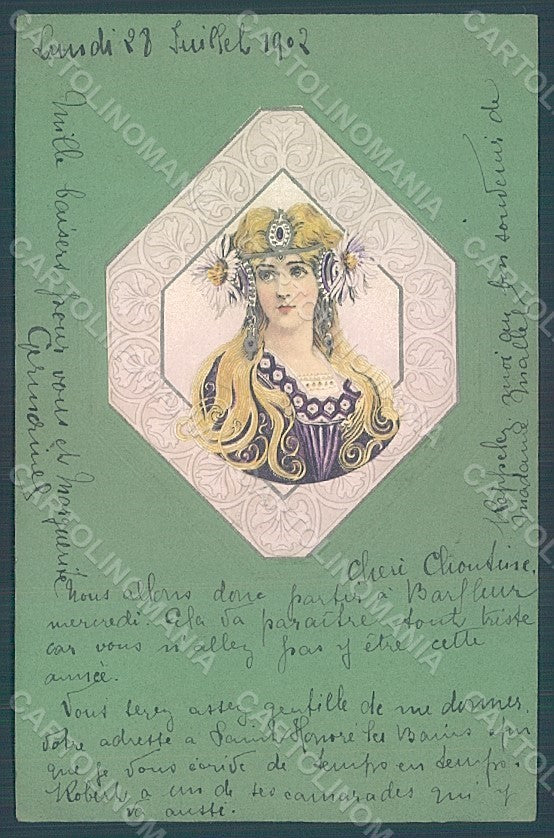 Lundi 28 Juillet 1902
Mille baisers pour vous et Marguerite
Germaine
Rappelez moi au bon souvenir de
Madame Mallet
Cheri
Nous allons donc partir à Barfleur
mercredi. Cela va paraître tout triste
car vous n'allez pas y être cette
année.
Vous serez assez gentille de me donner
votre adresse à Saint-Honoré les Bains
que je vous écrive de temps en temps.
Robert a un de ses camarades qui y
va aussi.
CARTOLINOMANIA